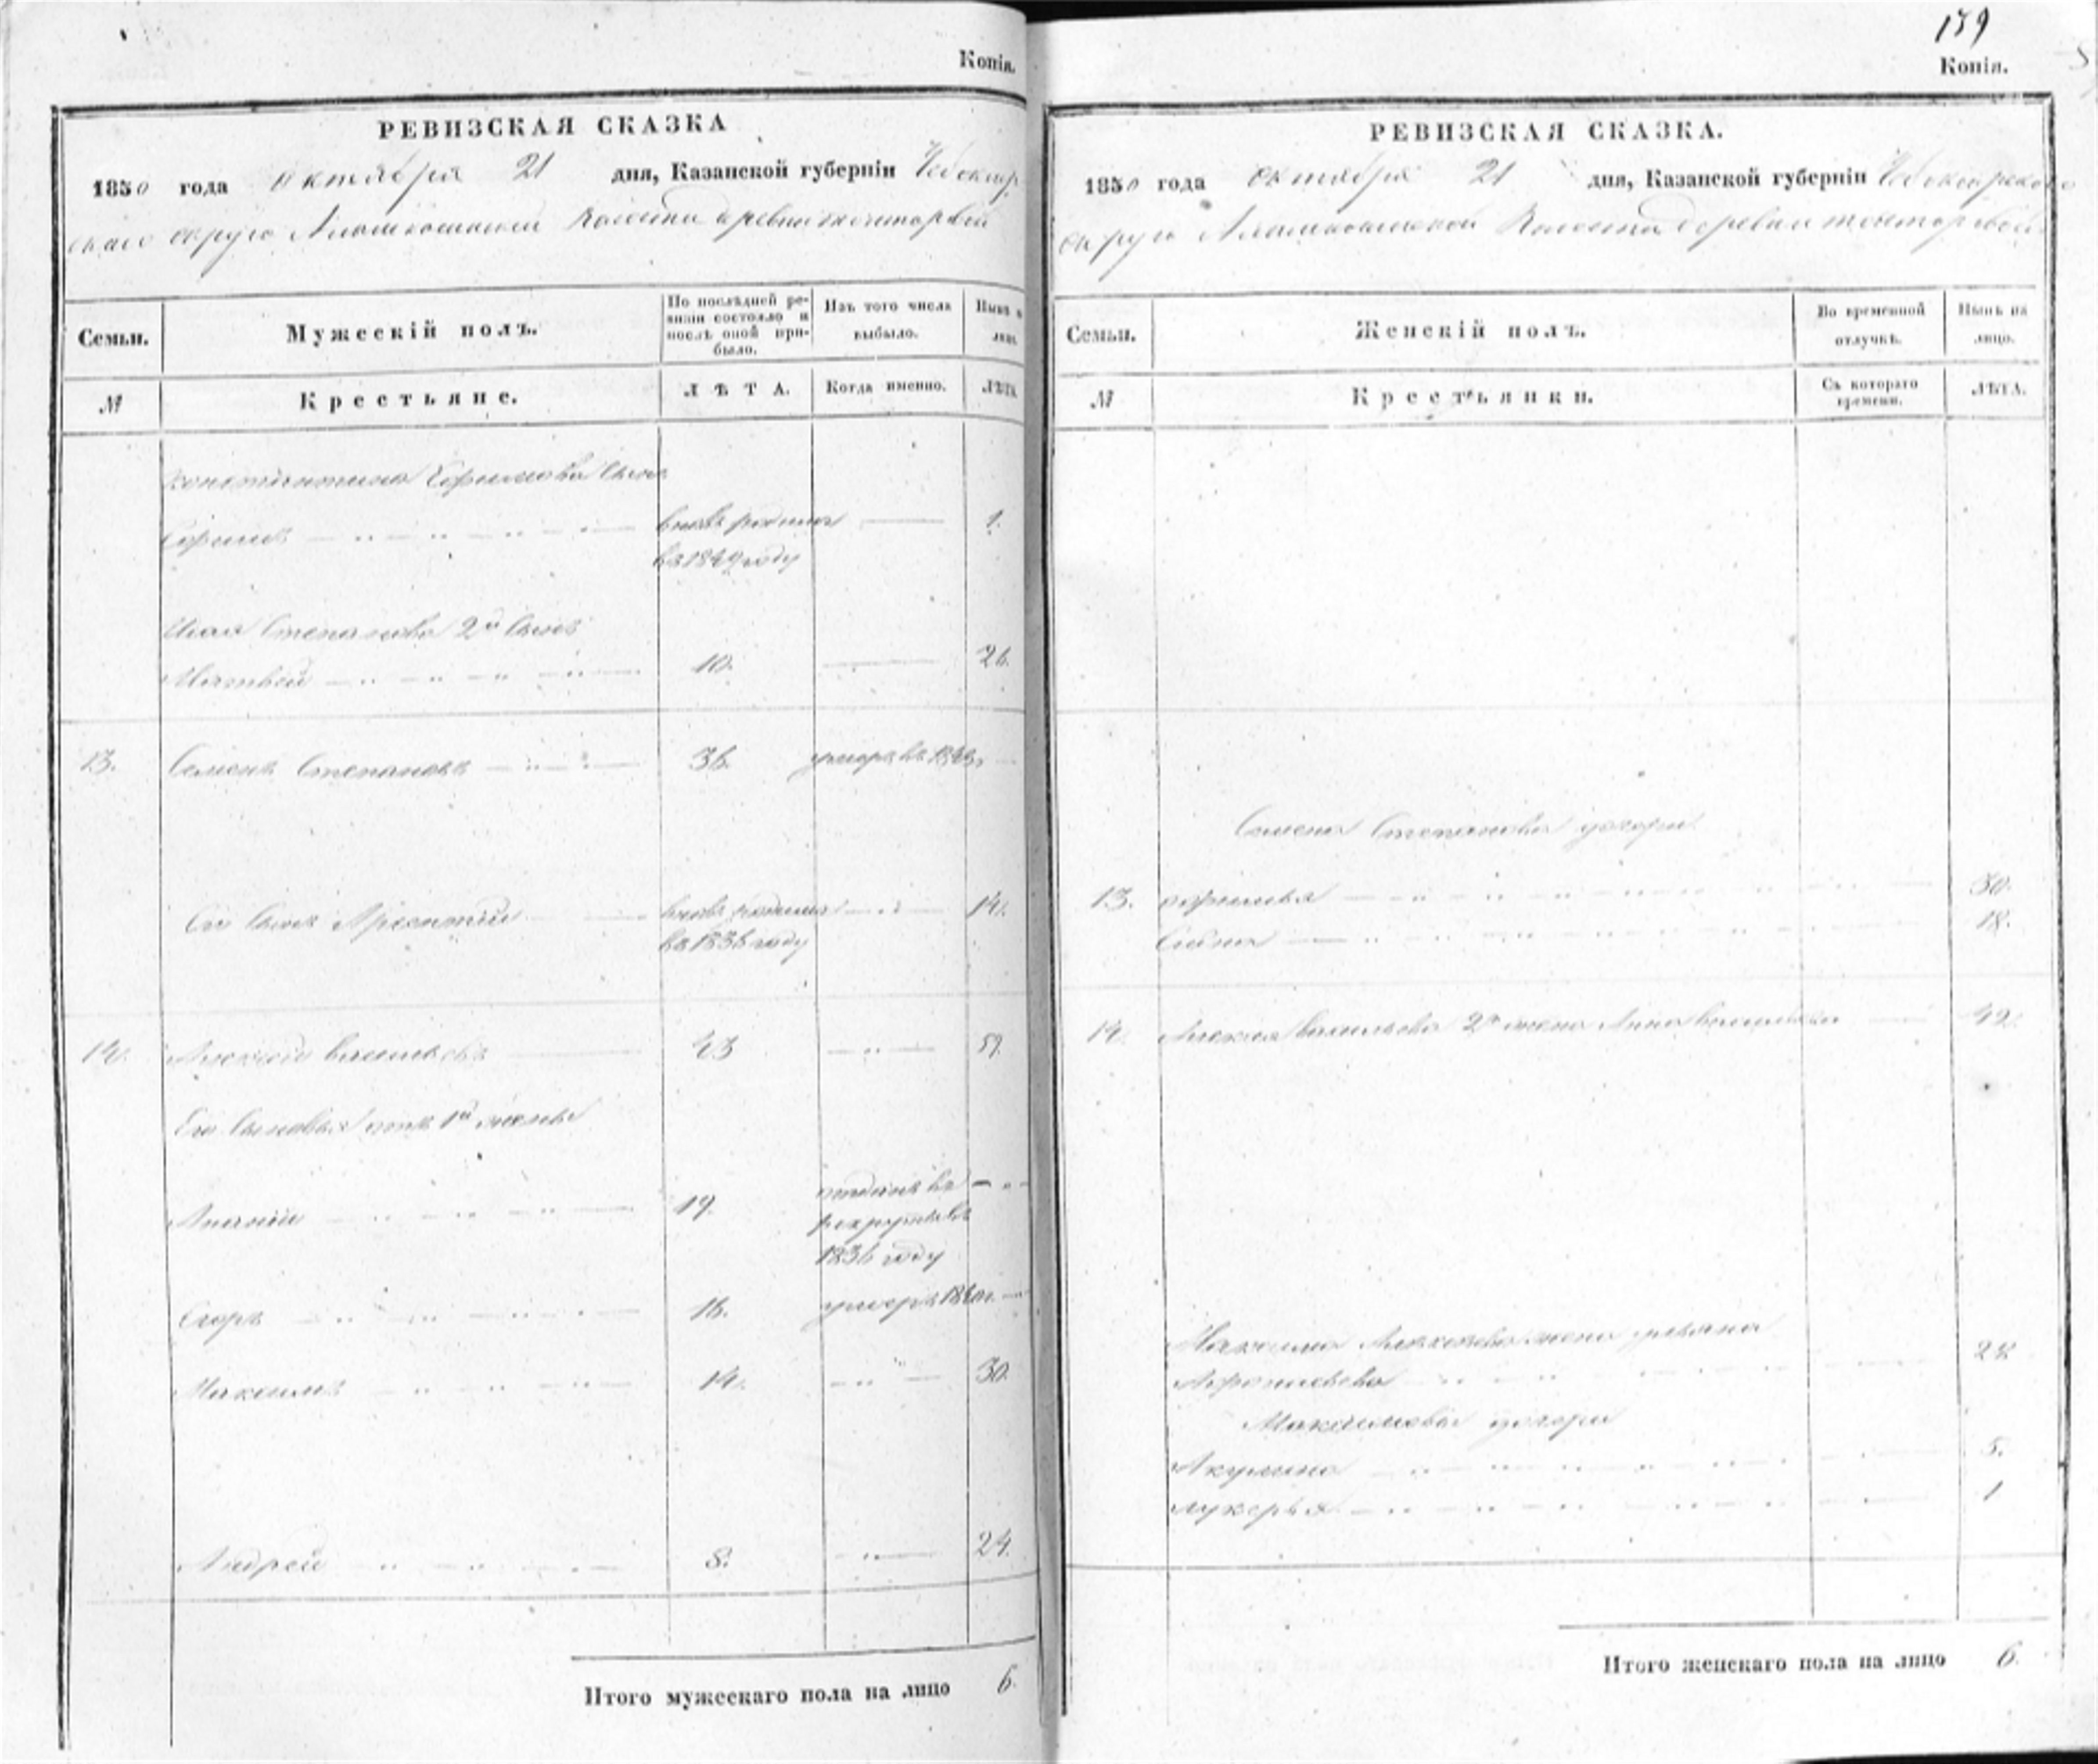 Копія.
РЕВИЗСКАЯ СКАЗКА
1850 года октября 21 дня, Казанской губерніи Чебоксар
скаго округа волости деревни
Семьи.
Мужескій полъ.
По послѣдней ре-
визіи состояло и
послѣ оной при-
было.
Изъ того числа
выбыло.
Нынѣ на
лицо.
№
Крестьяне.
ЛѢТА.
Когда именно.
ЛѢТА.
Константина Ефимова сынъ
Ефимъ вновь рожденъ 1.
въ 1849 году
Степанова 2й сынъ
Матвей 10. 26.
13. Семенъ Степановъ 36. умеръ въ
Его сынъ вновь рожденъ 14.
въ 1836 году
14. Алексей Васильевъ 43 59.
Его сыновья отъ 1й жены
Ананий 19. отданъ въ
рекруты въ
1836 году
Егоръ 16. умеръ
Максимъ 14. 30.
Андрей 8. 24.
Итого мужескаго пола на лицо 6.
159
Копія.
РЕВИЗСКАЯ СКАЗКА.
1850 года октября 21 дня, Казанской губерніи Чебоксарскаго
округа волости деревни
Семьи.
Женскій полъ.
Во временной
отлучкѣ.
Нынѣ на
лицо.
№
Крестьянки.
Съ котораго
времени.
ЛѢТА.
Семена Степанова дочери
13. 30.
18.
14. Алексея Васильева 2я жена Анна Васильева 49.
Максима Алексеева жена Ульяна
28
Максимовы дочери
Акулина 5.
Лукерья 1
Итого женскаго пола на лицо 6.